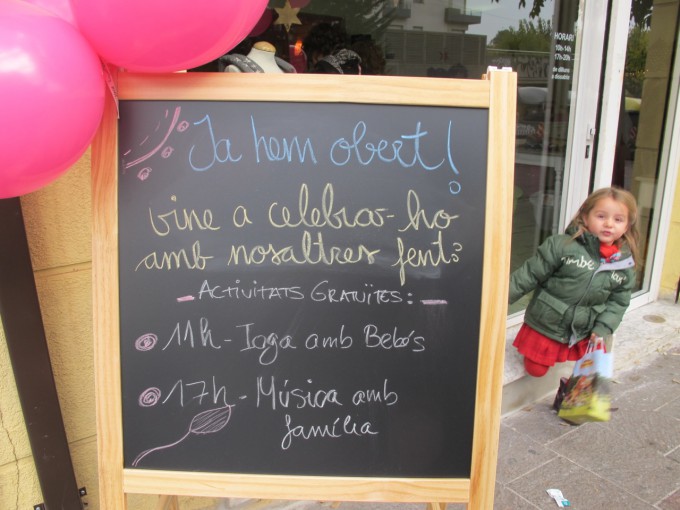 HORARI
10h-14h
17h-20h
Ja hem obert!
vine a celebrar-ho
amb nosaltres fent:
- ACTIVITATS GRATUÏTES: -
11h - Ioga amb Bebés
17h - Música amb
família